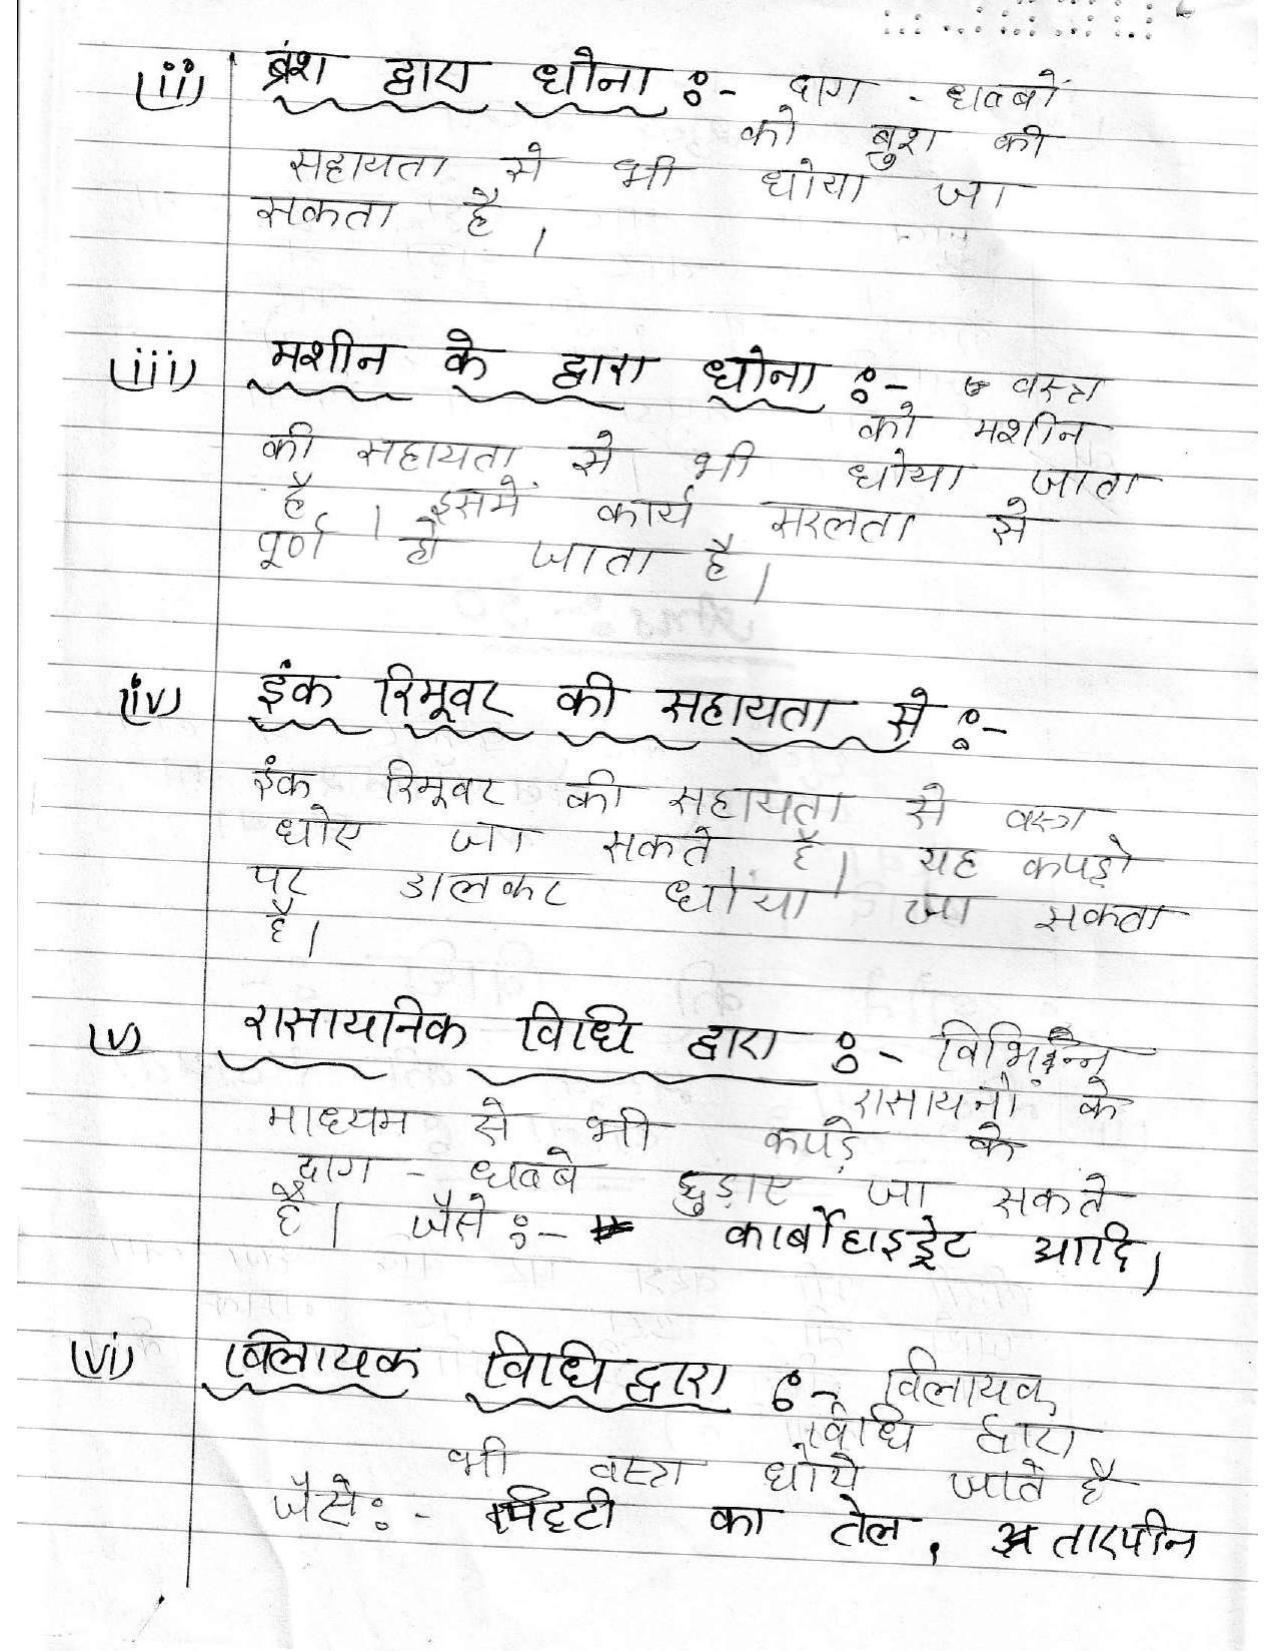 (ii) ब्रंश द्वारा धोना :- दाग - धब्बों
को बुश की
सहायता से भी धोया जा
सकता है ।
(iii) मशीन के द्वारा धोना :- वस्त्र
को मशीन
की सहायता से भी धोया जाता
है । इसमें कार्य सरलता से
पूर्ण हो जाता है ।
(iv) इंक रिमूवर की सहायता से :-
इंक रिमूवर की सहायता से वस्त्र
धोए जा सकते है । यह कपड़ो
पर डालकर धोया जा सकता
है ।
(v) रासायनिक विधि द्वारा :- विभिन्न
रासायनों के
माध्यम से भी कपड़े के
दाग - धब्बे छुड़ाए जा सकते
हैं । जैसे :- कार्बोहाइड्रेट आदि ।
(vi) विलायक विधि द्वारा :- विलायक
विधि द्वारा
भी वस्त्र धोये जाते है
जैसे :- मिट्टी का तेल , तारपीन